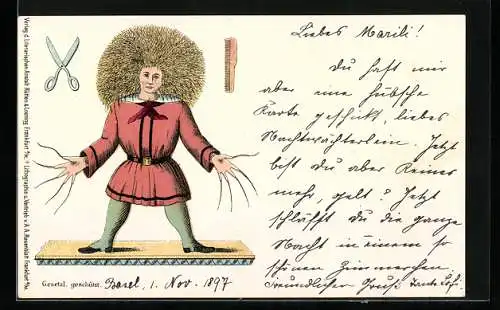 Liebes Marili!
Du hast mir
aber eine hübsche
Karte geschickt, liebes
Nachtwächterlein. Jetzt
bist du aber Keines
mehr, gelt? Jetzt
schläfst du die ganze
Nacht in einem so
schönen Zimmerchen.
Freundlicher Gruss Tante
Gesetzl. geschützt. Basel, 1. Nov. 1897
Verlag d. Literarischen Anstalt Rütten & Loening, Frankfurt a/M.